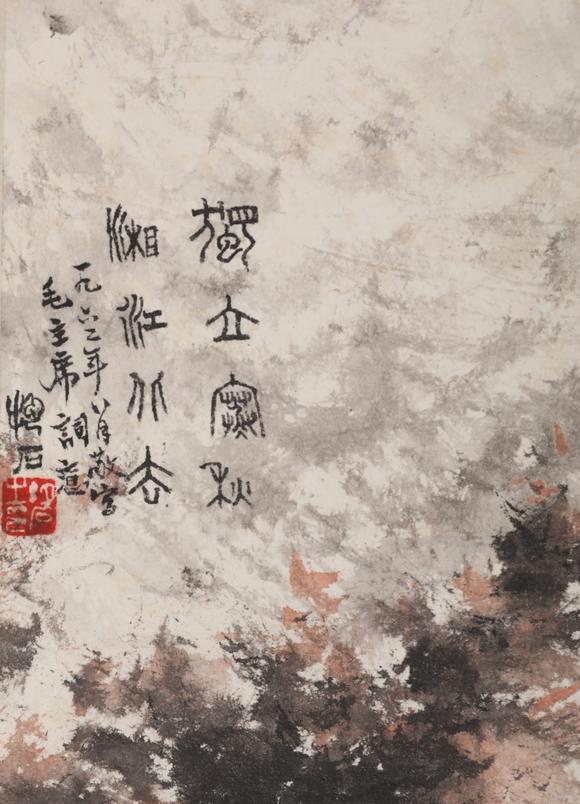 獨立寒秋
湘江北去
一九六二年八月敬寫
毛主席詞意
抱石